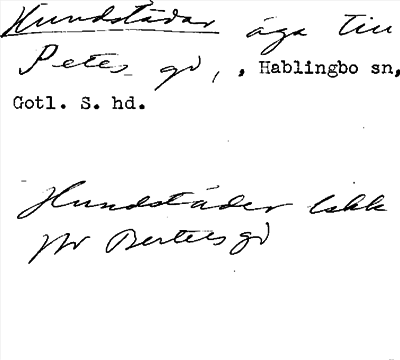 Hundstädar äga till
Petes gd, , Hablingbo sn,
Gotl. S. hd.
Hundstäder
Bertels gd